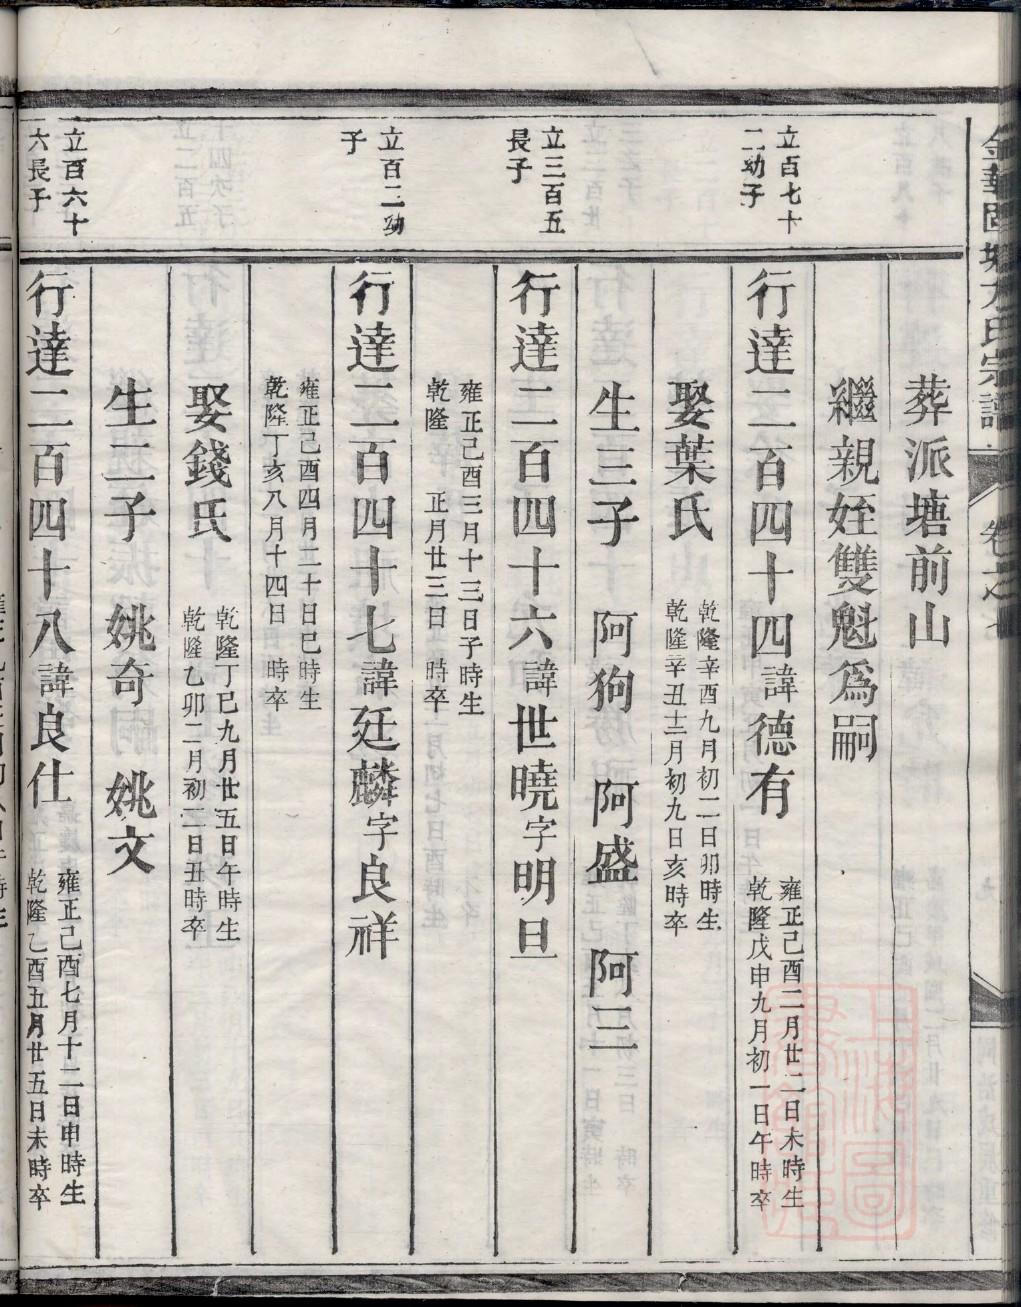 葬派塘前山
繼親姪雙魁爲嗣
立百七十
二幼子
行達二百四十四諱德有
雍正己酉二月廿二日未時生
乾隆戊申九月初一日午時卒
娶葉氏
乾隆辛酉九月初二日卯時生
乾隆辛丑十二月初九日亥時卒
生三子 阿狗 阿盛 阿三
立三百五
長子
行達二百四十六諱世曉字明旦
雍正己酉三月十三日子時生
乾隆 正月廿三日 時卒
立百二幼
子
行達二百四十七諱廷麟字良祥
雍正己酉四月二十日巳時生
乾隆丁亥八月十四日 時卒
娶錢氏
乾隆丁巳九月廿五日午時生
乾隆乙卯二月初二日丑時卒
生二子 姚奇 姚文
立百六十
六長子
行達二百四十八諱良仕
雍正己酉七月十二日申時生
乾隆乙酉五月廿五日未時卒